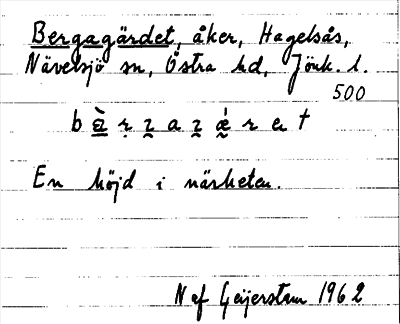 Bergagärdet, åker, Hagelsås,
Nävelsjö sn, Östra hd, Jönk. l.
500
En höjd i närheten.
N af Geijerstam 1962